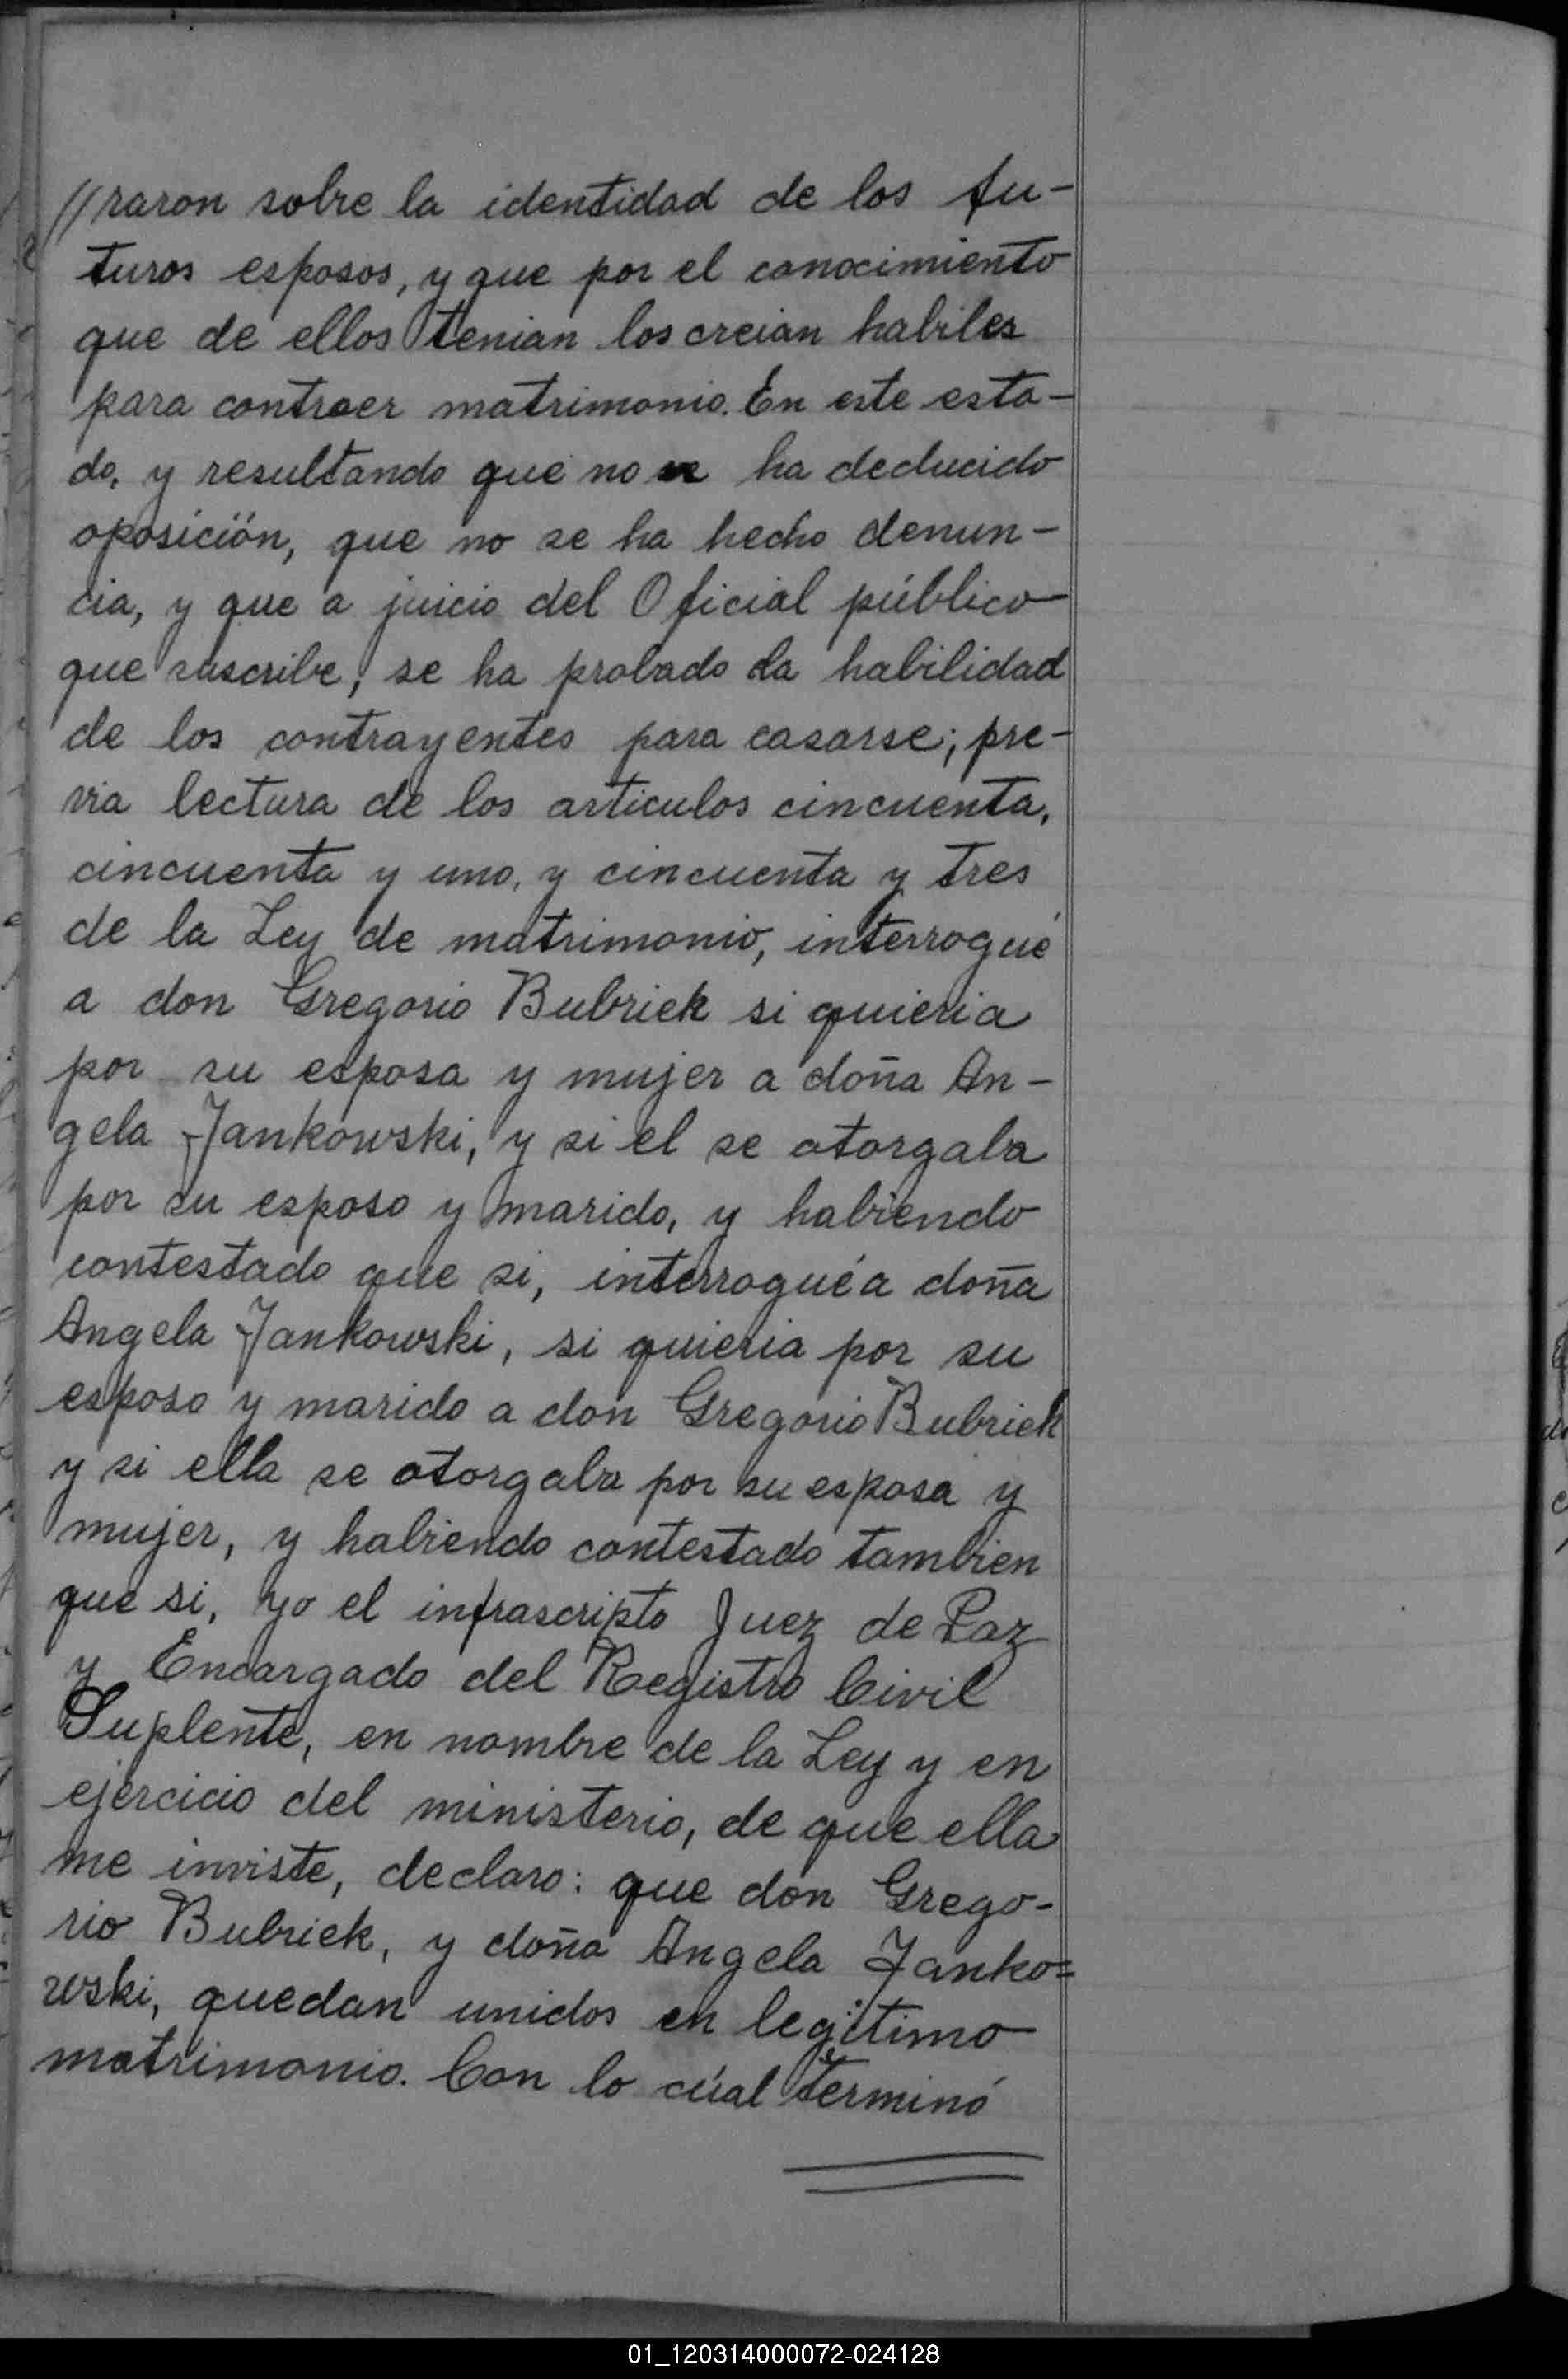 //raron sobre la identidad de los fu-
turos esposos, y que por el conocimiento
que de ellos tenian los creian habiles
para contraer matrimonio. En este esta-
do, y resultando que no se ha deducido
oposición, que no se ha hecho denun-
cia, y que a juicio del Oficial público
que suscribe, se ha probado la habilidad
de los contrayentes para casarse; pre-
via lectura de los articulos cincuenta,
cincuenta y uno, y cincuenta y tres
de la Ley de matrimonio, interrogué
a don Gregorio Bubriek si quieria
por su esposa y mujer a doña An-
gela Jankowski, y si el se otorgaba
por su esposo y marido, y habiendo
contestado que si, interrogué a doña
Angela Jankowski, si quieria por su
esposo y marido a don Gregorio Bubriek
y si ella se otorgaba por su esposa y
mujer, y habiendo contestado tambien
que si, yo el infrascripto Juez de Paz
y Encargado del Registro Civil
Suplente, en nombre de la Ley y en
ejercicio del ministerio, de que ella
me inviste, declaro: que don Grego-
rio Bubriek, y doña Angela Janko=
wski, quedan unidos en legitimo
matrimonio. Con lo cúal terminó
01_120314000072-024128